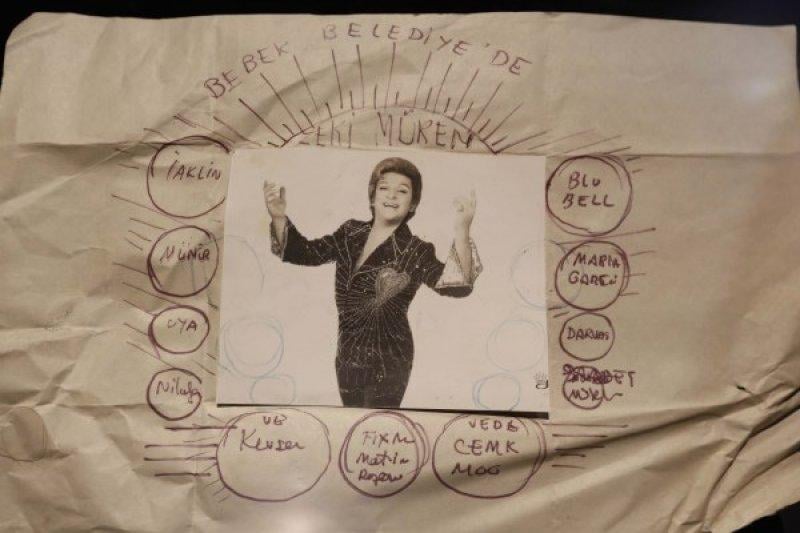 BEBEK BELEDİYE'DE
ZEKİ MÜREN
İAKLİN
NÜNİR
OYA
Nilüfer
BLU
BELL
MARIA
DARVAS
VE
Kevser
FİXM
Metin
VEDE
CEMK
MOG